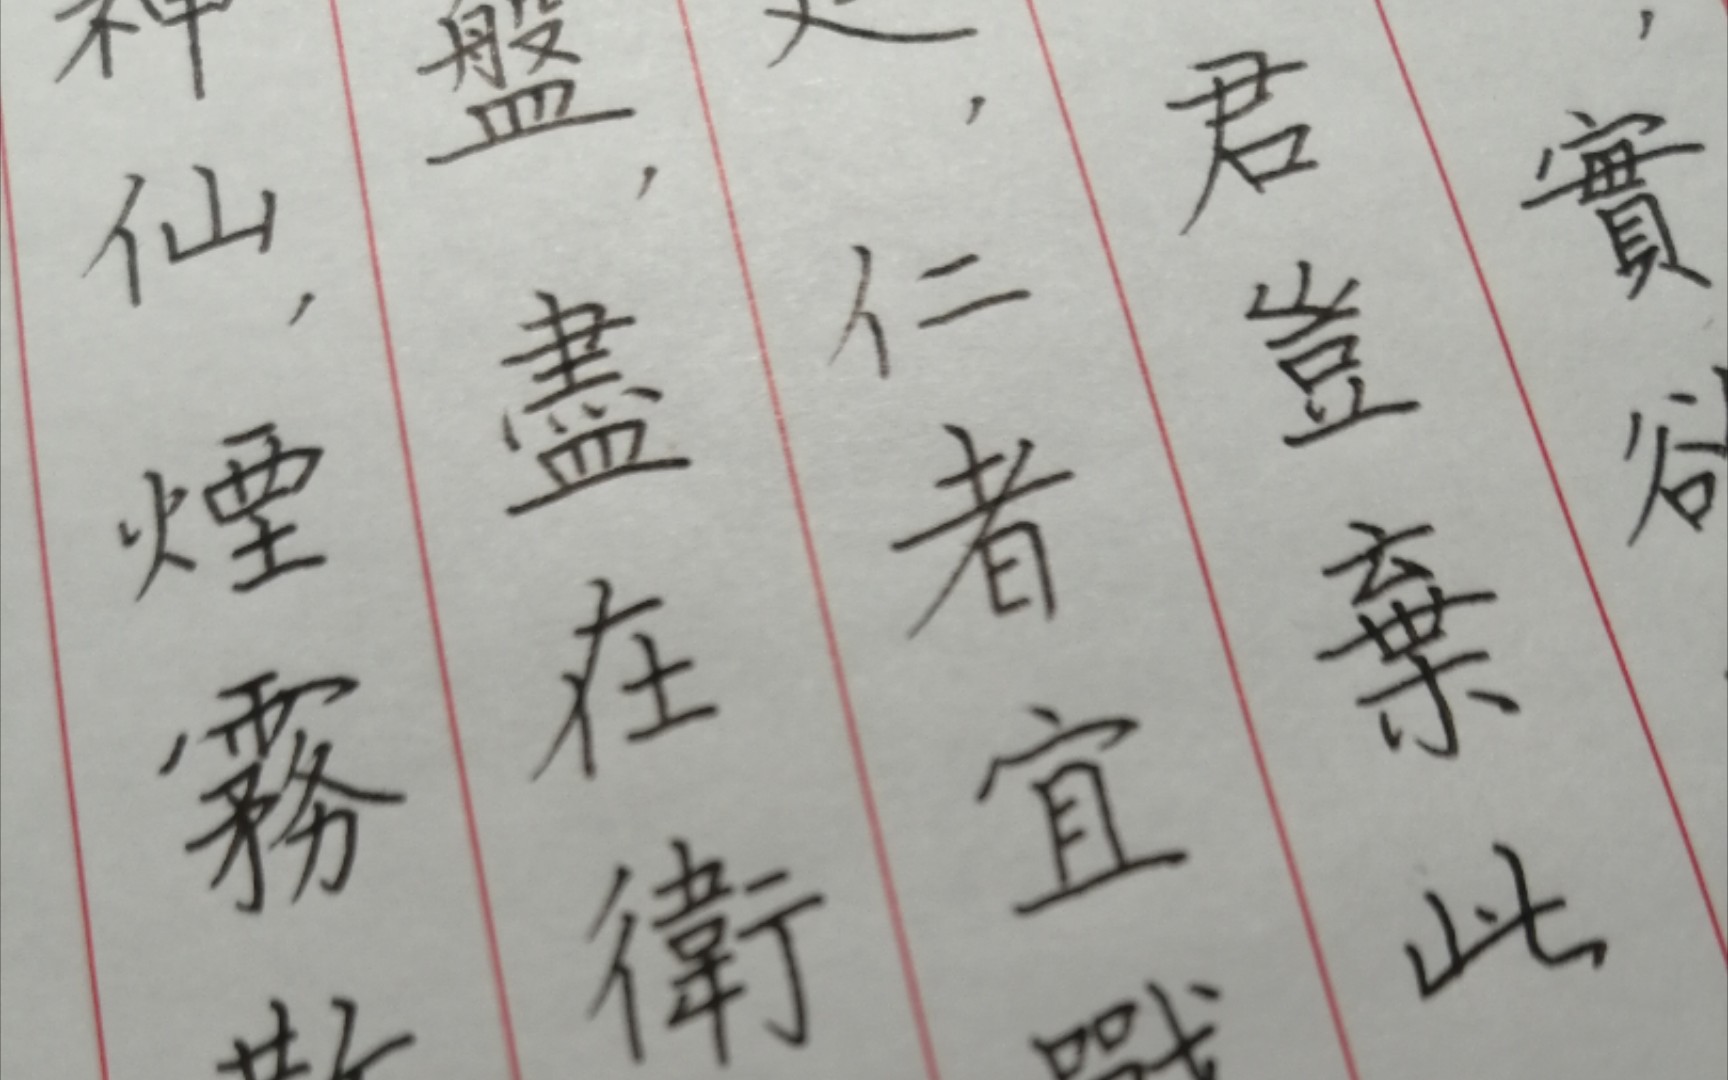 ，實
君豈棄此
，仁者宜戰
盤，盡在衛
神仙，煙霧散